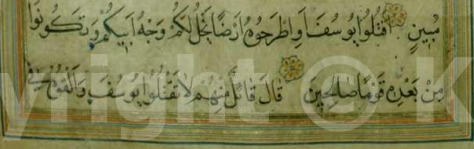 مُبِينٍ اقْتُلُوا يُوسُفَ أَوِ اطْرَحُوهُ أَرْضًا يَخْلُ لَكُمْ وَجْهُ أَبِيكُمْ وَتَكُونُوا
مِنْ بَعْدِهِ قَوْمًا صَالِحِينَ قَالَ قَائِلٌ مِنْهُمْ لَا تَقْتُلُوا يُوسُفَ وَأَلْقُوهُ فِي